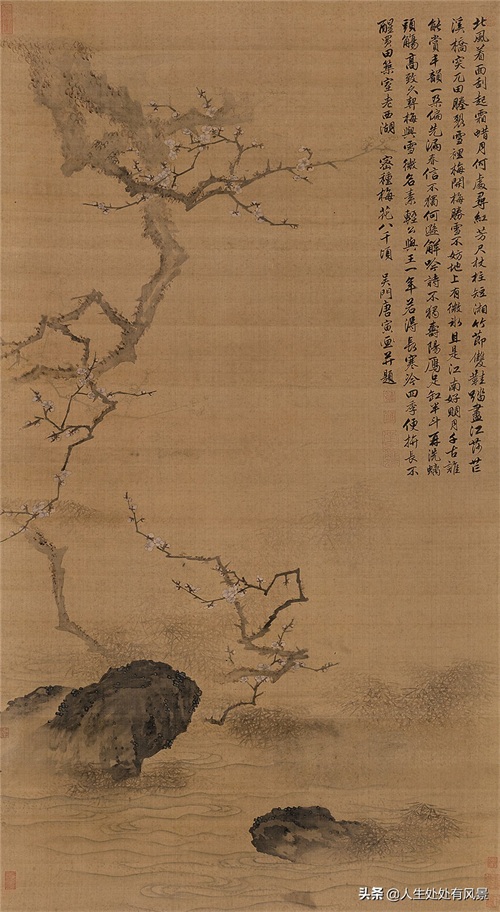 北風着面刮起霜蜡月何處尋紅芳尺杖柱短湘竹節雙鞋踏盡江莎芒
溪橋突兀田塍裂雪裡梅開梅勝雪不妨地上有微冰且是江南好明月千古誰
能賞丰韻一朶偏先漏春信不獨何遜解吟詩不獨壽陽
斗再洗
頭觴高致久興梅與雪微名素輕公與王一年若得長寒冷四季便拚長不
醒買田築室老西湖密種梅花八千頃吴門唐寅画并題
头条@人生处处有风景